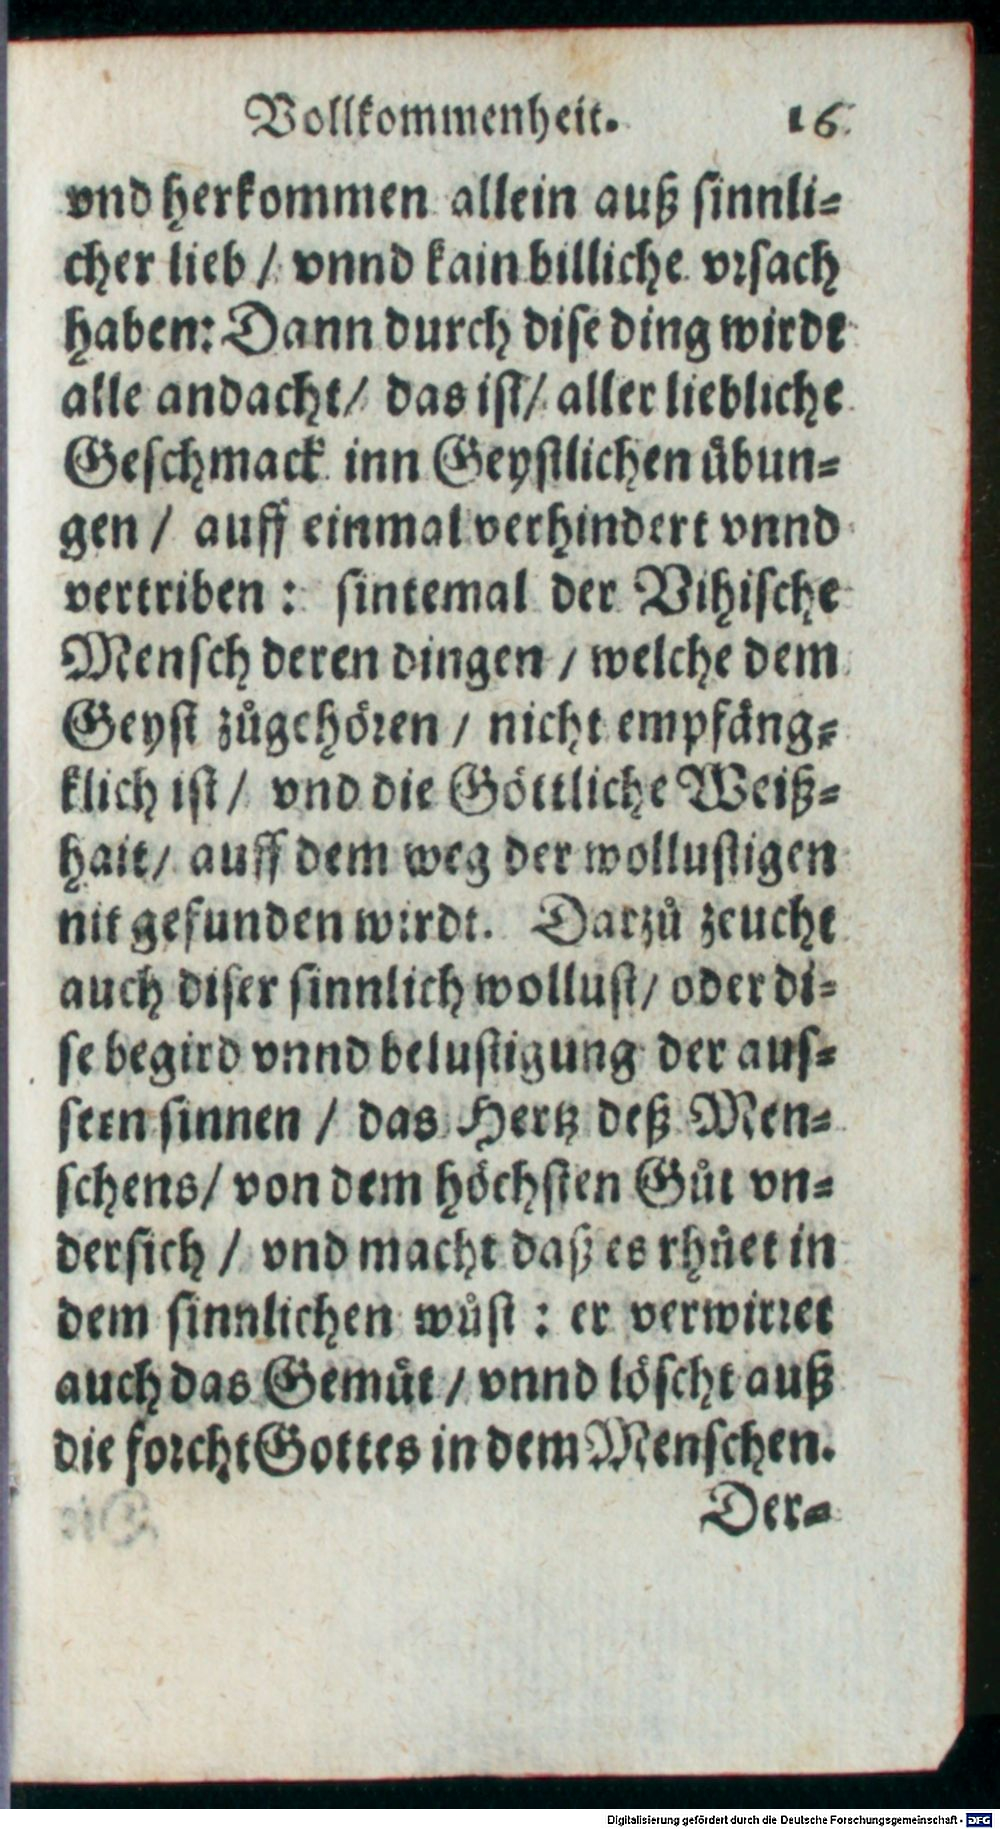 Vollkommenheit. 16.
vnd herkommen allein auß sinnli-
cher lieb / vnnd kain billiche vrsach
haben: Dann durch dise ding wirdt
alle andacht / das ist / aller liebliche
Geschmack inn Geystlichen übun-
gen / auff einmal verhindert vnnd
vertriben : sintemal der Vihische
Mensch deren dingen / welche dem
Geyst zůgehören / nicht empfäng-
klich ist / vnd die Göttliche Weiß-
hait / auff dem weg der wollustigen
nit gefunden wirdt. Darzů zeucht
auch diser sinnlich wollust / oder di-
se begird vnnd belustigung der aus-
sern sinnen / das Hertz deß Men-
schens / von dem höchsten Gůt vn-
dersich / vnd macht daß es rhůet in
dem sinnlichen wůst : er verwirret
auch das Gemüt / vnnd löscht auß
die forcht Gottes in dem Menschen.
Der-
Digitalisierung gefördert durch die Deutsche Forschungsgemeinschaft - DFG